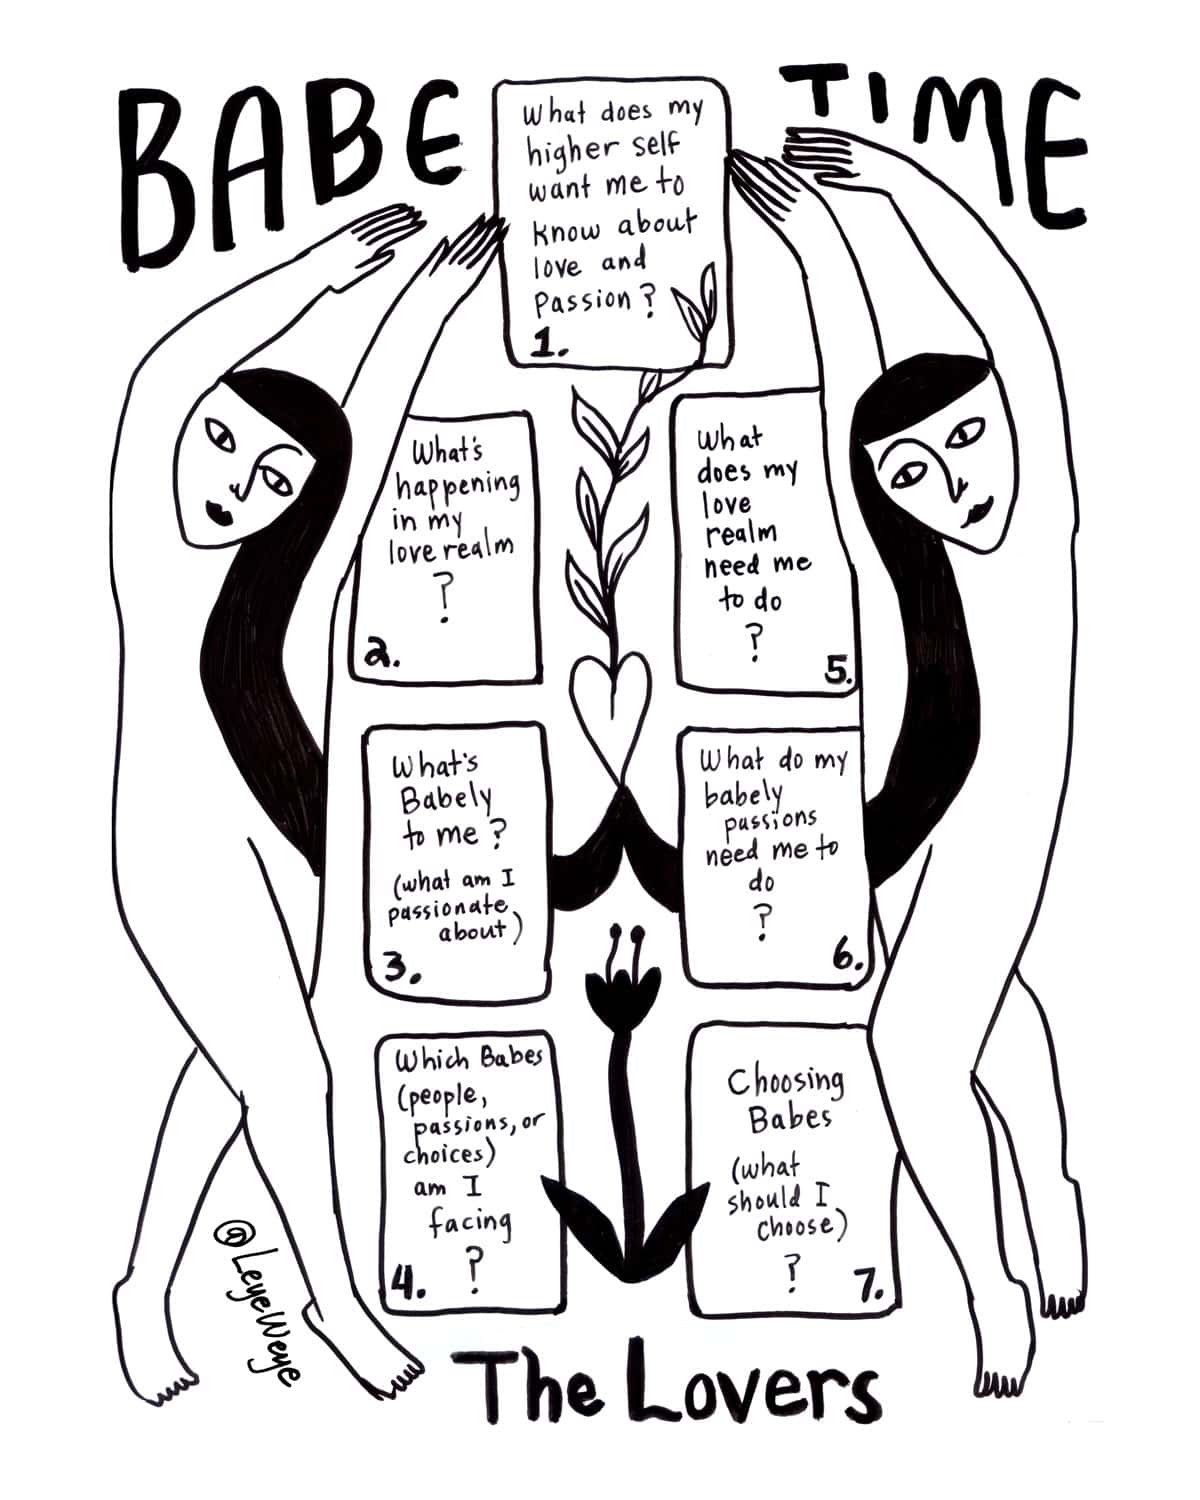 BABE TIME
What does my
higher self
want me to
know about
love and
passion?
1.
What's
happening
in my
love realm
?
2.
What's
Babely
to me?
(what am I
passionate
about)
3.
Which Babes
(people,
passions, or
choices)
am I
facing
?
4.
What
does my
love
realm
need me
to do
?
5.
What do my
babely
passions
need me to
do
?
6.
Choosing
Babes
(what
should I
choose)
?
7.
@LeyeWeye
The Lovers